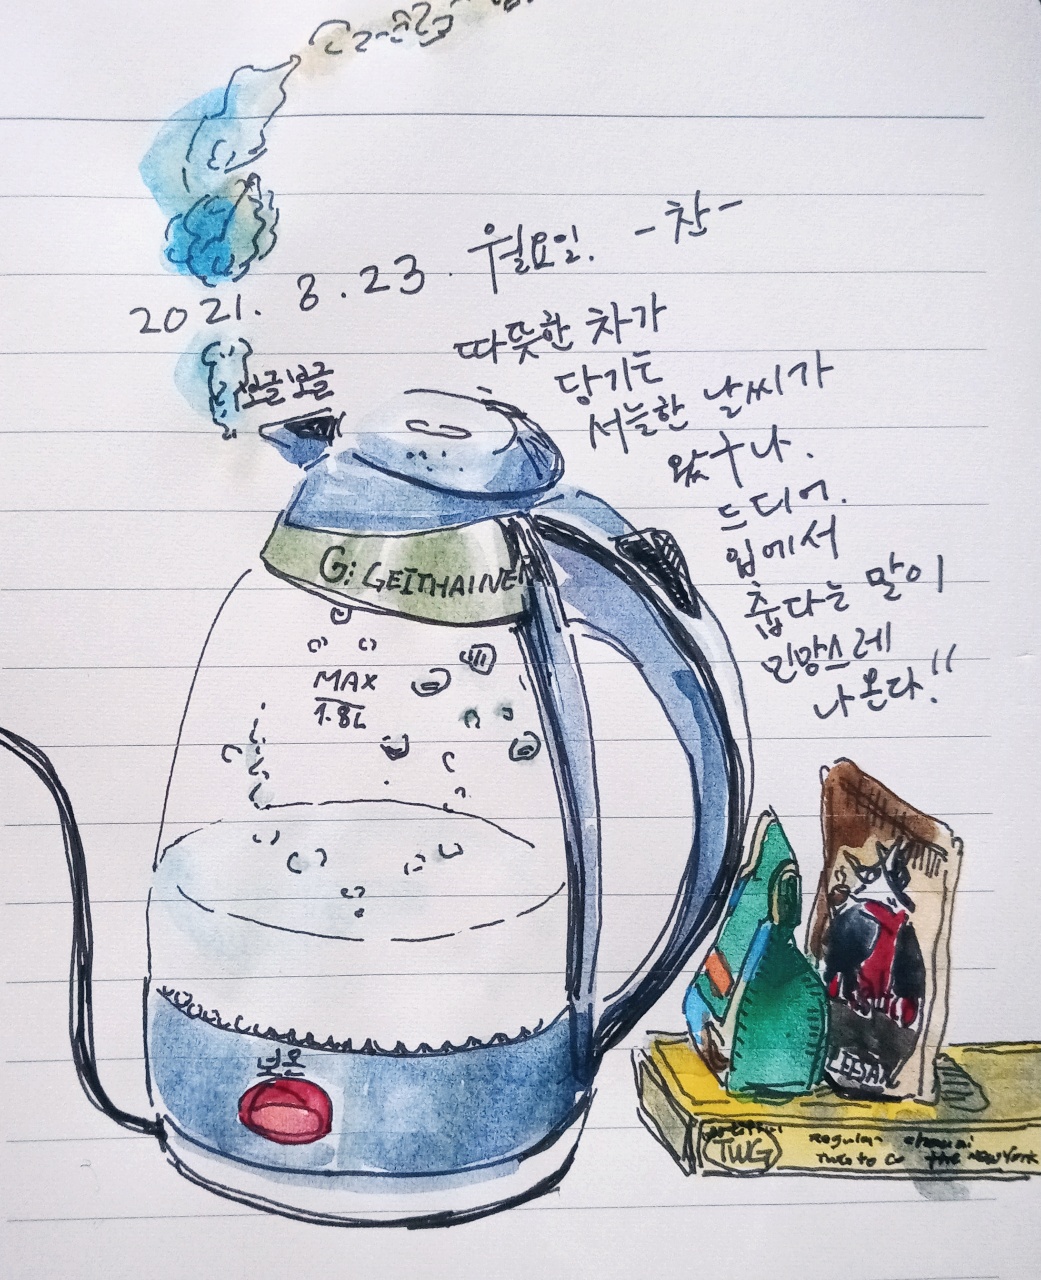 2021. 8. 23. 월요일. -찬-
따뜻한 차가
당기는
서늘한 날씨가
왔구나.
드디어.
입에서
춥다는 말이
민망스레
나온다!!
보글보글
G: GEITHAINER
MAX
1.8L
보온
TWG
regular
the NEW YORK